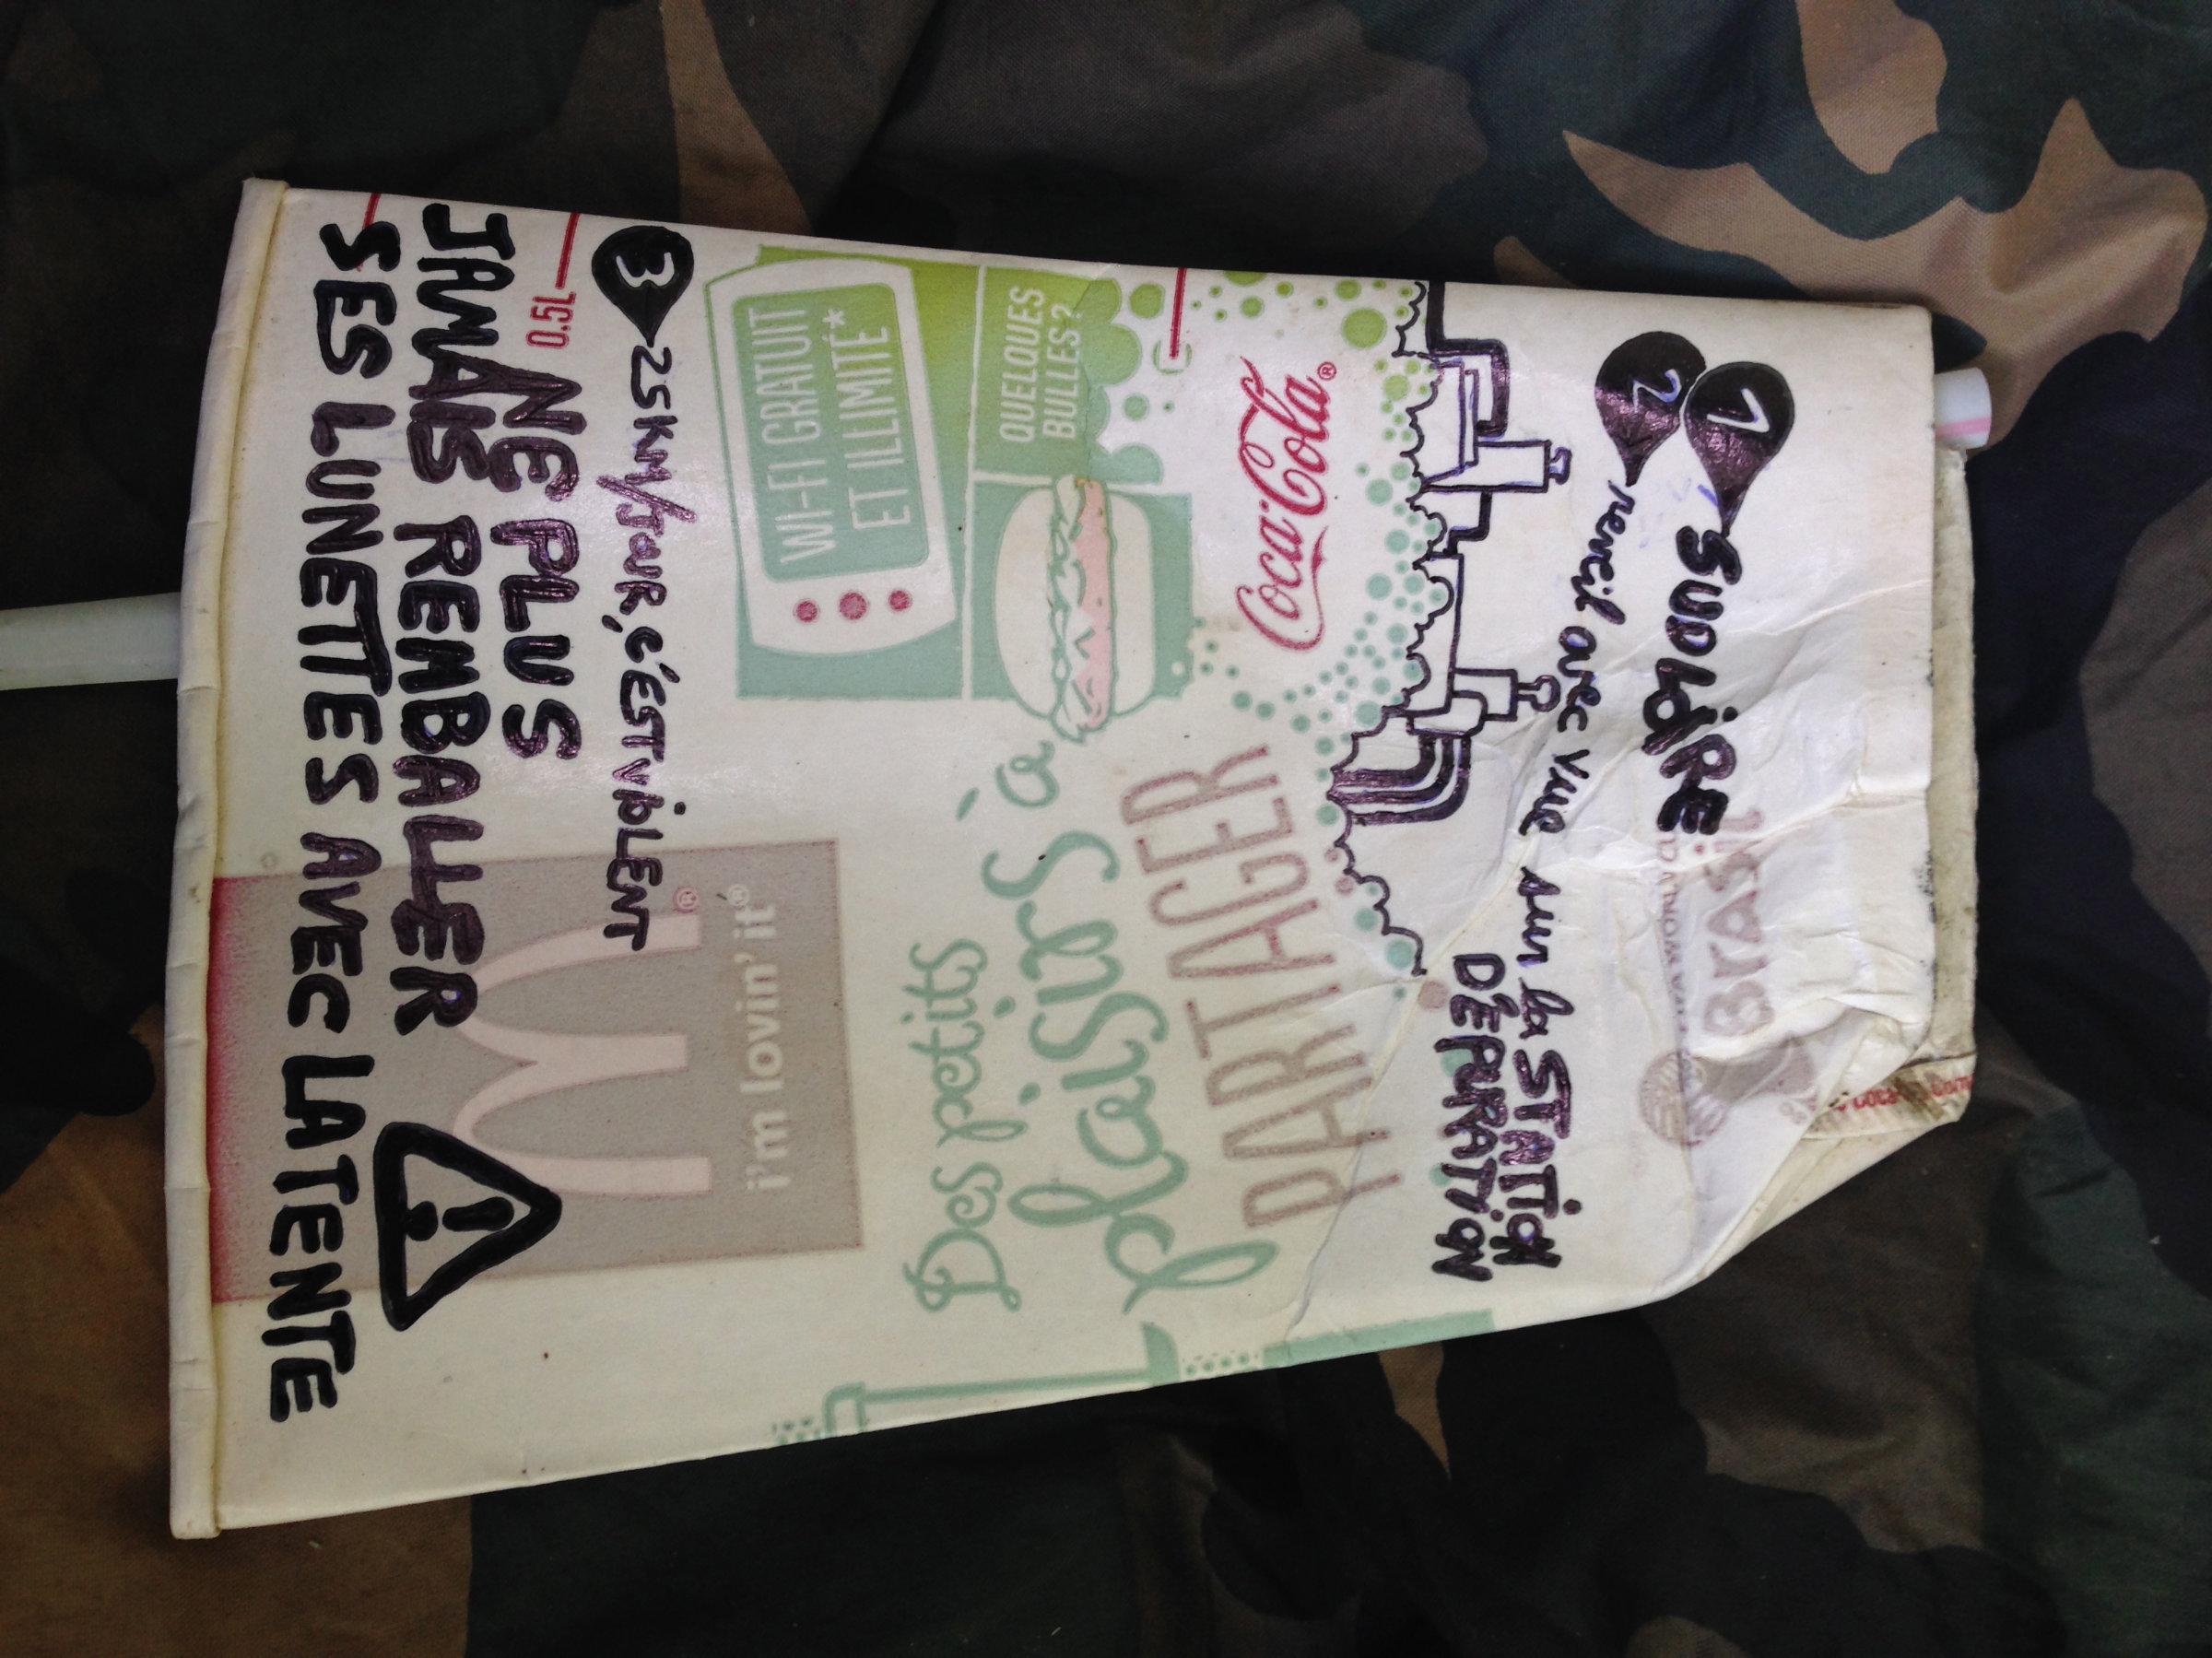 1 SUDLOIRE
2 réveil avec vue sur la STATION
DÉPURATION
3 25KM/JOUR, C'EST VIOLENT
NE PLUS
JAMAIS REMBALLER
SES LUNETTES AVEC LATENTE
!
0.5L
WI-FI GRATUIT
ET ILLIMITÉ*
QUELQUES
BULLES?
Coca-Cola®
i'm lovin' it®
Des petits
plaisirs à
PARTAGER
Brasil